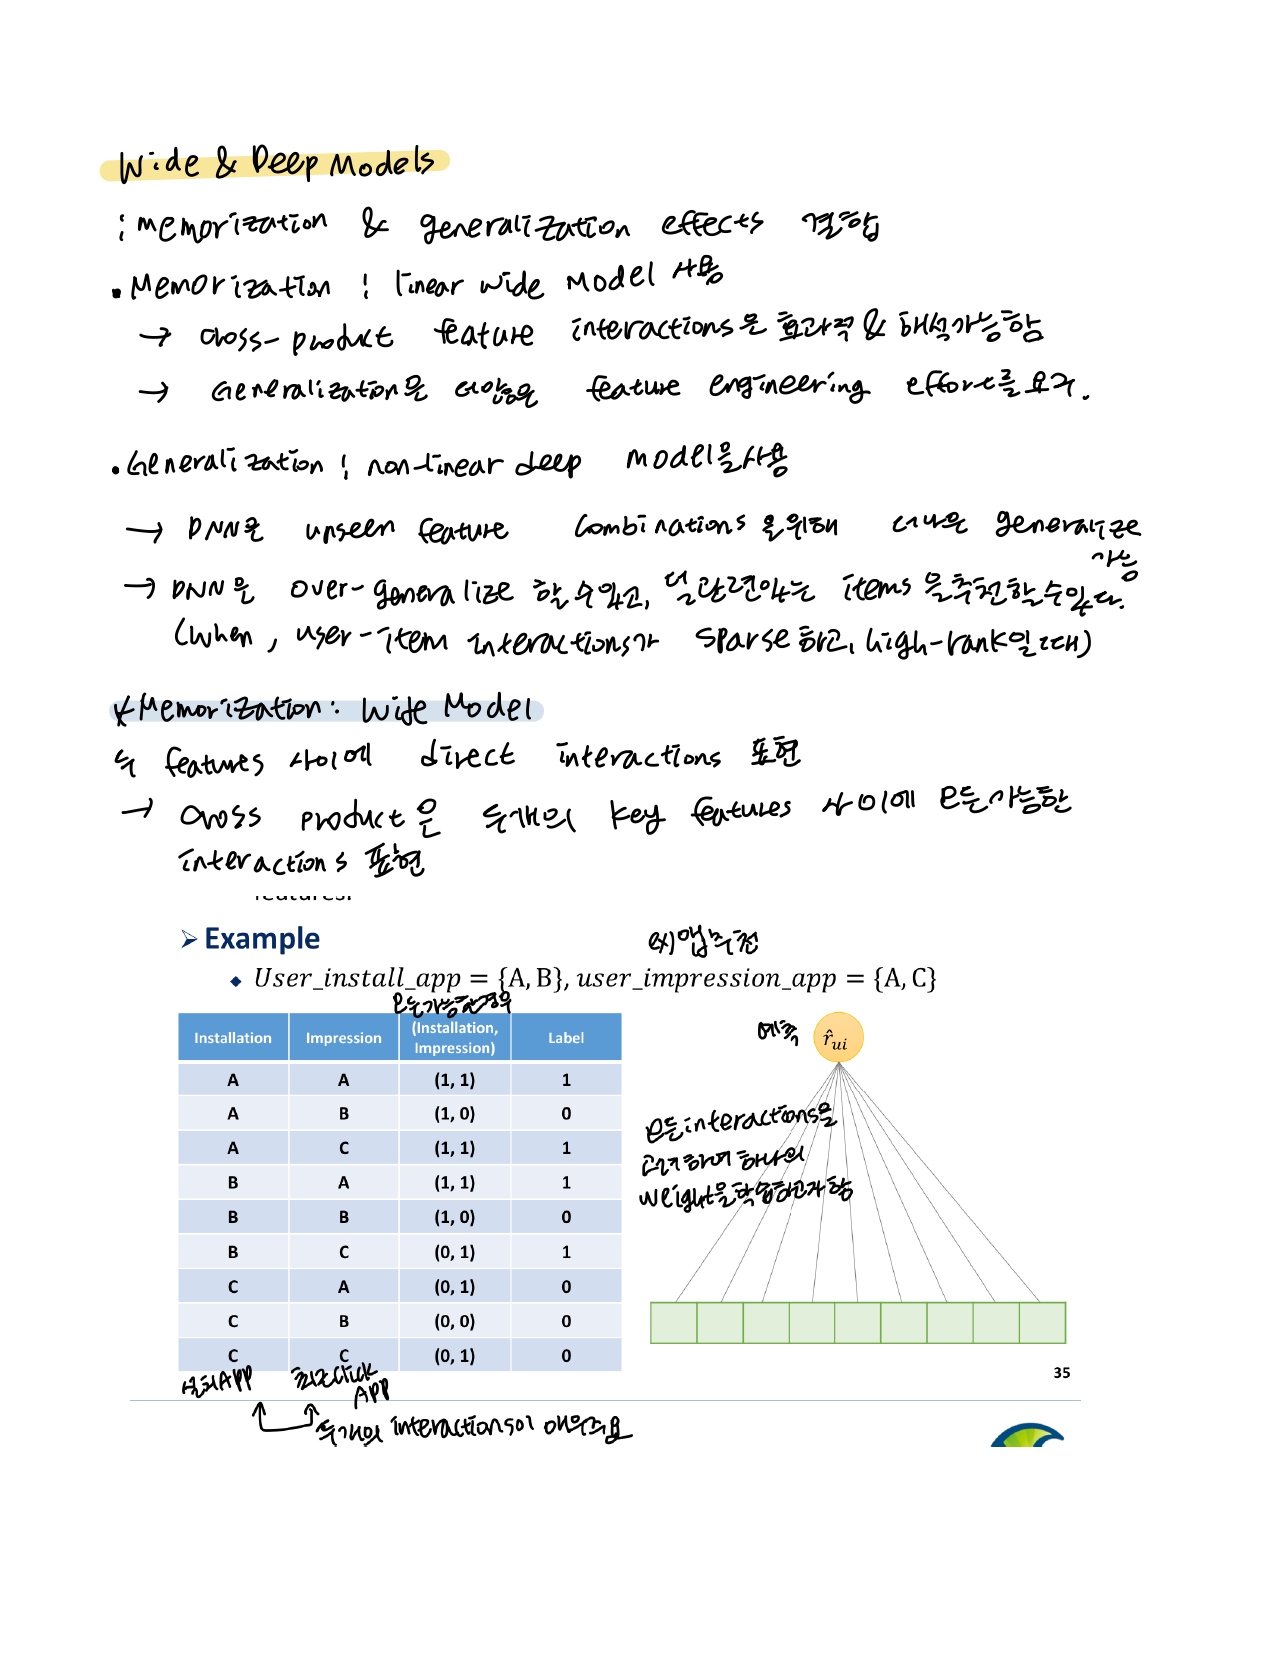 Wide & Deep Models
: memorization & generalization effects 결합
• Memorization : linear wide model 사용
→ cross-product feature interactions은 효과적 & 해석가능함
→ Generalization은 더많은 feature engineering effort를 요구.
• Generalization : non-linear deep model을 사용
→ DNN은 unseen feature combinations을 위해 더나은 generalize
가능
→ DNN은 over-generalize 할 수 있고, 덜 관련있는 items을 추천할 수 있다.
(when, user-item interactions가 sparse하고, high-rank일 때)
* Memorization: Wide Model
두 features 사이에 direct interactions 표현
→ cross product은 두개의 key features 사이에 모든가능한
interactions 표현
features.
➢ Example
ex) 앱추천
◆ User_install_app = {A, B}, user_impression_app = {A, C}
모든가능한경우
Installation Impression (Installation, Impression) Label
A A (1, 1) 1
A B (1, 0) 0
A C (1, 1) 1
B A (1, 1) 1
B B (1, 0) 0
B C (0, 1) 1
C A (0, 1) 0
C B (0, 0) 0
C C (0, 1) 0
예측 r̂ui
모든 interactions을
고려하여 하나의
weight을 학습하고자 함
35
설치APP
최근click
APP
두개의 interactions이 매우중요